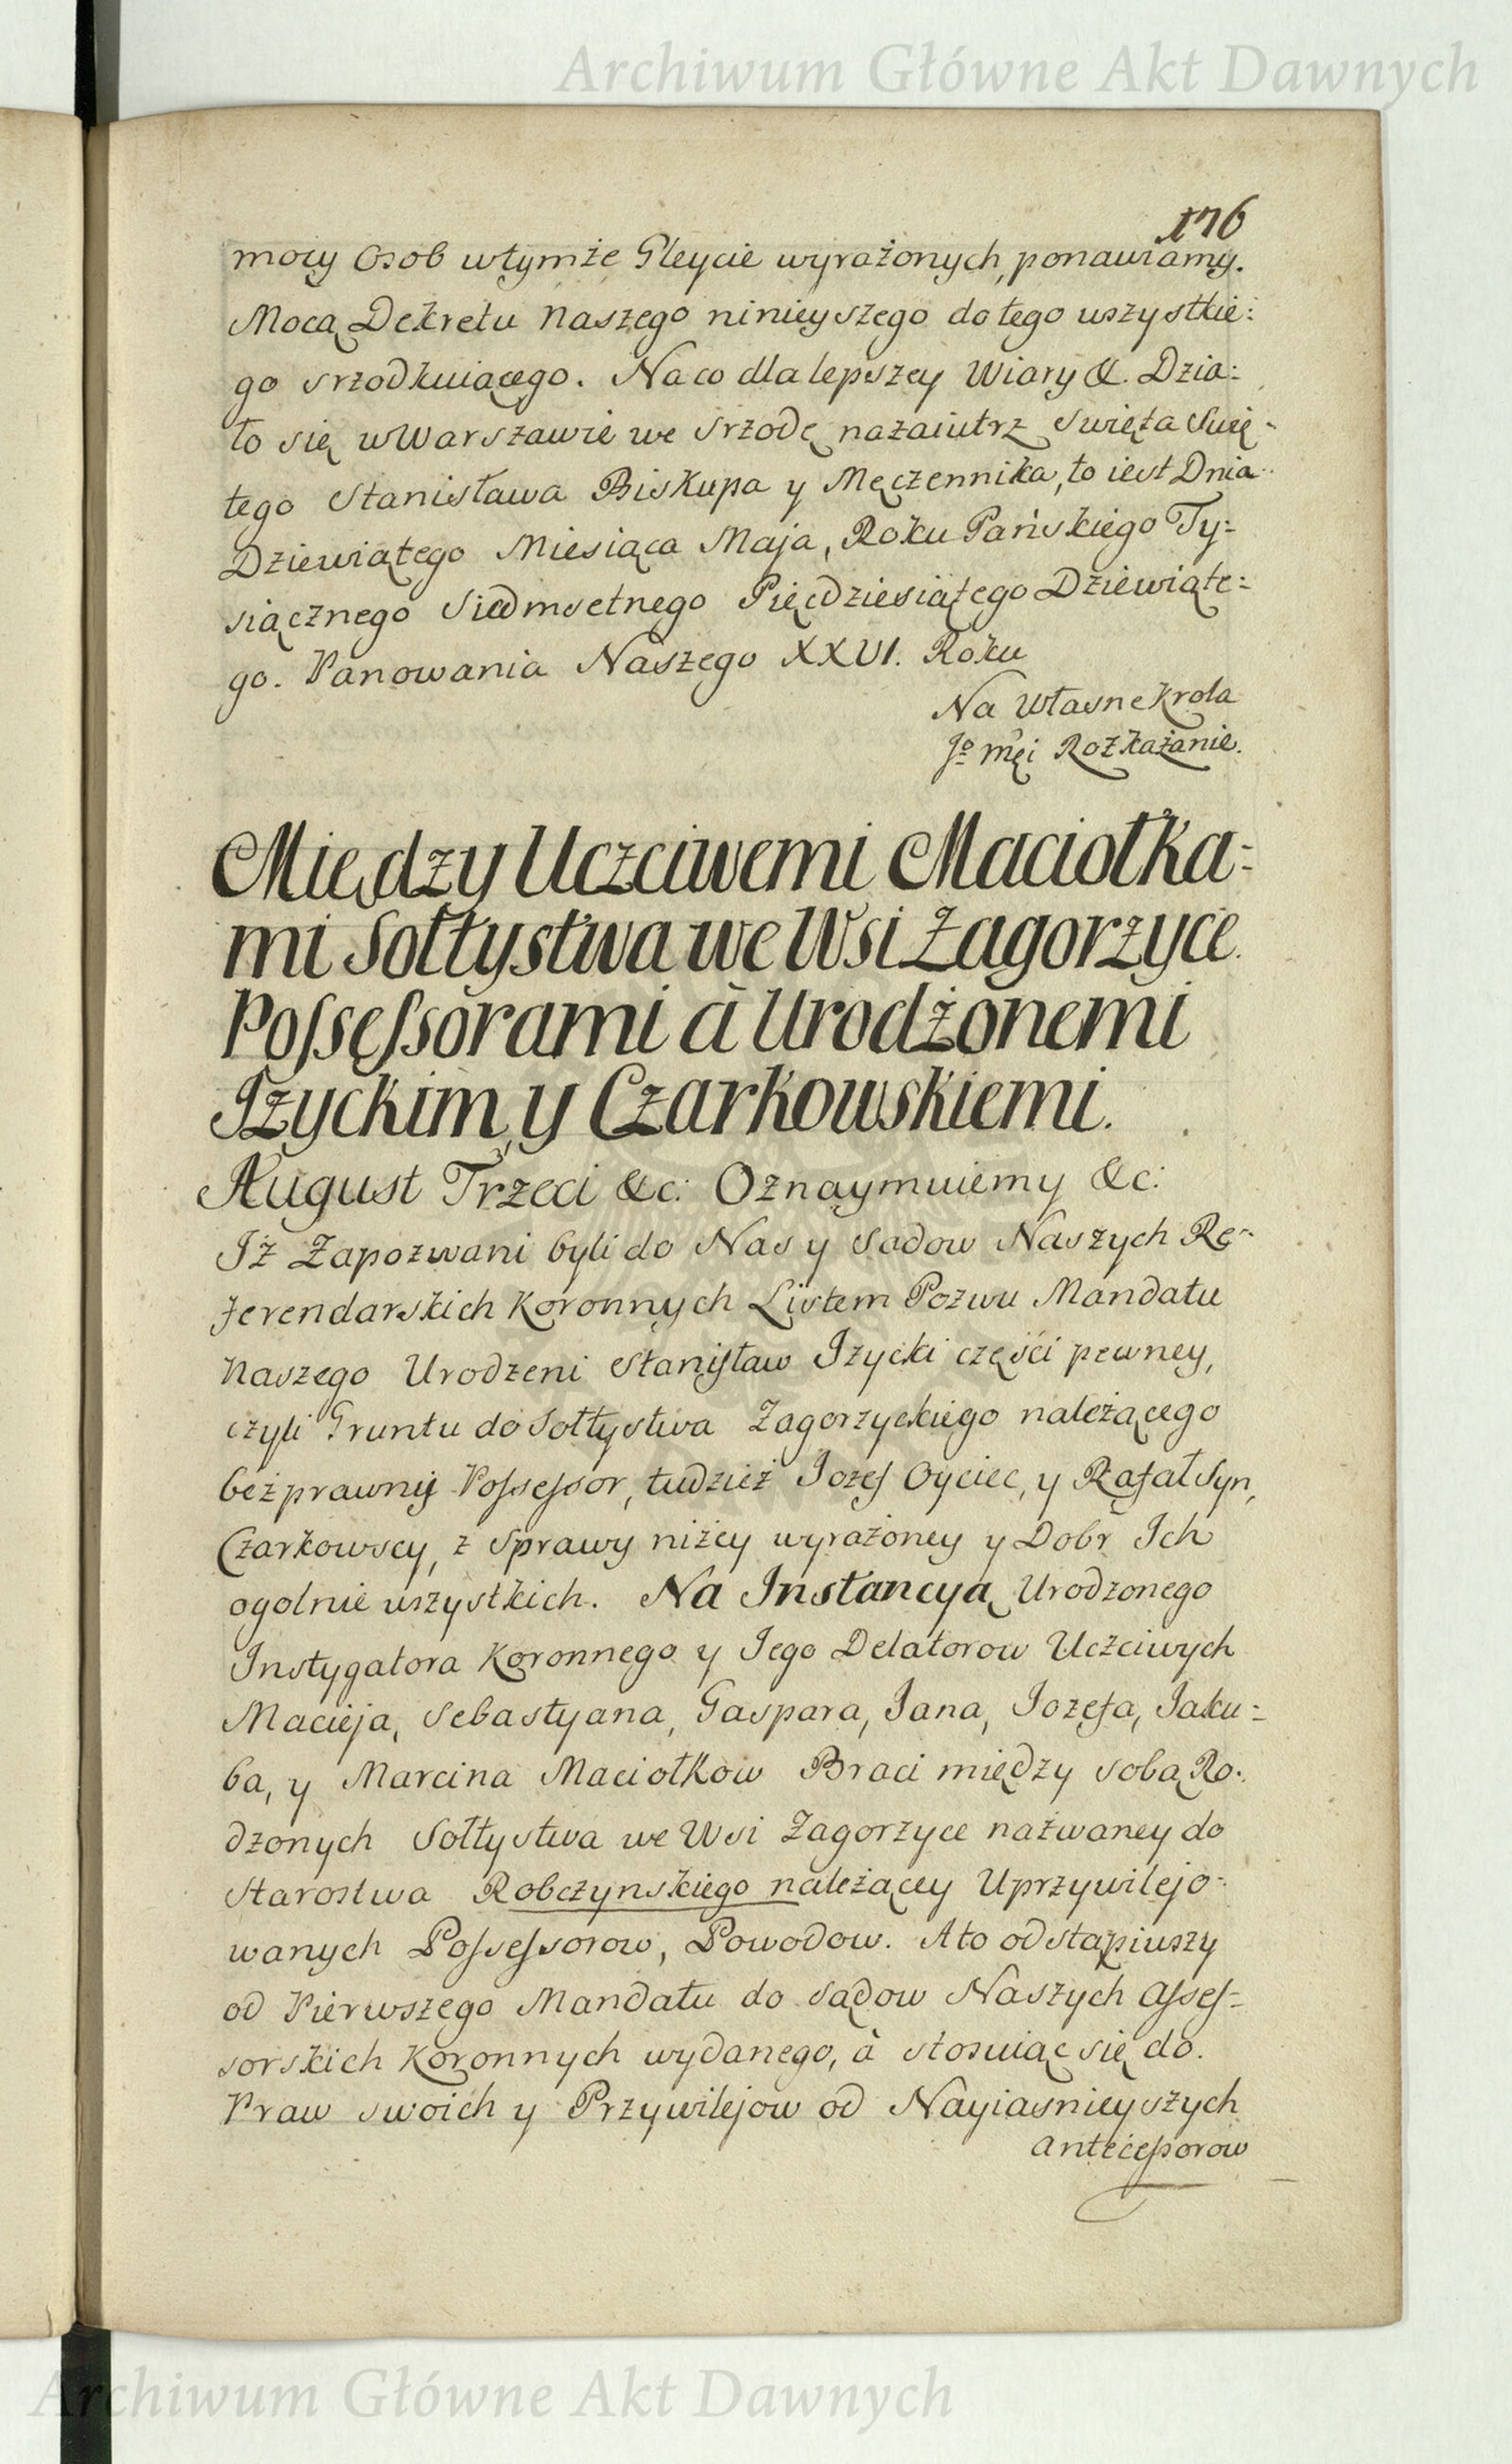 Archiwum Główne Akt Dawnych
176
mocy Osob wtymże Gleycie wyrażonych, ponawiamy.
Mocą Dekretu Naszego ninieyszego do tego wszystkie:
go srzodkuiącego. Na co dla lepszey Wiary &. Dzia:
ło się w Warszawie we Srzodę nazaiutrz Swięta Swię-
tego Stanisława Biskupa y Męczennika, to iest Dnia
Dziewiątego Miesiąca Maja, Roku Pańskiego Ty=
siącznego Siedmsetnego Pięcdziesiątego Dziewiąte=
go. Panowania Naszego XXVI. Roku
Na Własne Krola
Jo Mći Rozkazanie.
Między Uczciwemi Maciołka=
mi Sołtystwa we Wsi Zagorzyce
Possessorami à Urodzonemi
Izyckim y Czarkowskiemi.
August Trzeci &c: Oznaymuiemy &c:
Iż Zapozwani byli do Nas y Sądow Naszych Re-
ferendarskich Koronnych Listem Pozwu Mandatu
Naszego Urodzeni Stanisław Izycki części pewney,
czyli Gruntu do Sołtystwa Zagorzyckiego należącego
bezprawny Possessor, tudzież Iozef Oyciec, y Rafał Syn,
Czarkowscy, z Sprawy niżey wyrażoney y Dobr Ich
ogolnie wszystkich. Na Instancyą Urodzonego
Instygatora Koronnego y Iego Delatorow Uczciwych
Macieja, Sebastyana, Gaspara, Jana, Iozefa, Jaku=
ba, y Marcina Maciołkow Braci między sobą Ro-
dzonych Sołtystwa we Wsi Zagorzyce nazwaney do
Starostwa Robczynskiego należącey Uprzywilejo-
wanych Possessorow, Powodow. A to odstąpiwszy
od Pierwszego Mandatu do Sądow Naszych Asses=
sorskich Koronnych wydanego, à stosuiąc się do
Praw swoich y Przywilejow od Nayiasnieyszych
Antecessorow
Archiwum Główne Akt Dawnych